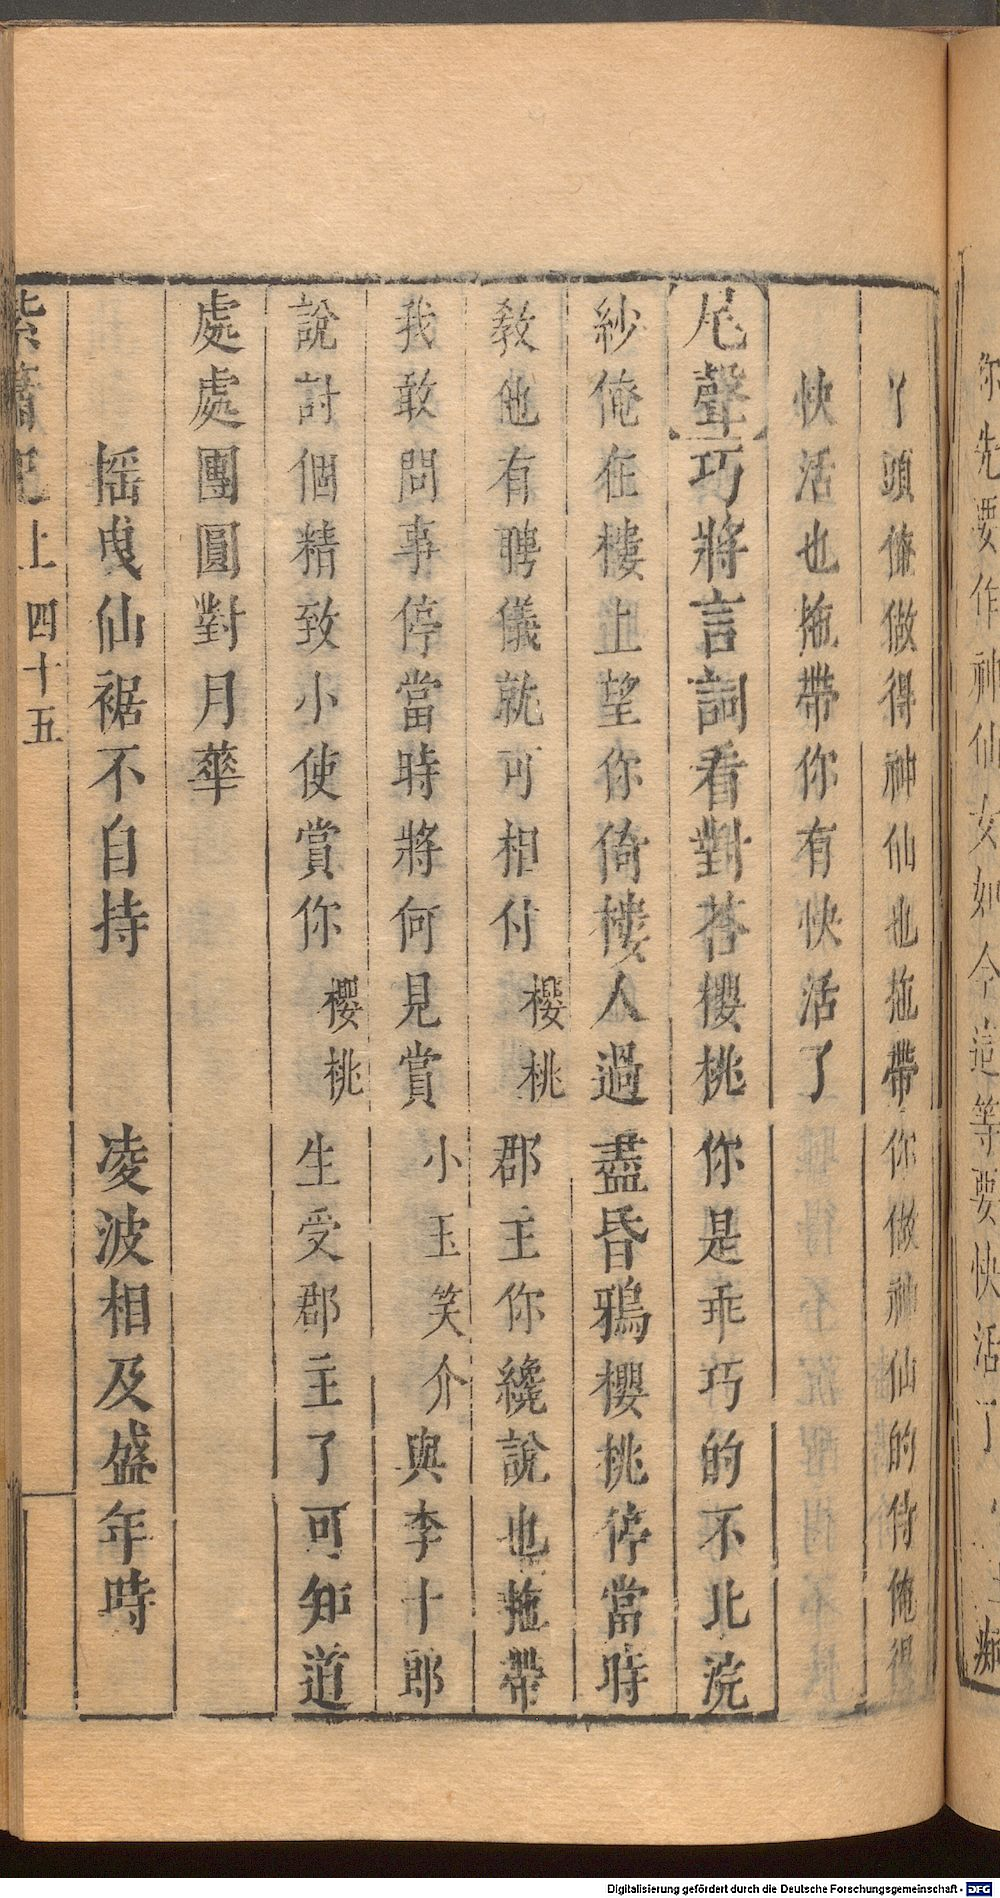 你先要作神仙女如今這等要快活了
丫頭儞做得神仙也拖帶你做神仙的侍俺得
快活也拖帶你有快活了
尾聲巧將言詞看對荅櫻桃你是乖巧的不比浣
紗俺在樓上望你倚樓人過盡昏鴉櫻桃停當時
教他有聘儀就可相付櫻桃郡主你纔說也拖帶
我敢問事停當時將何見賞小玉笑介與李十郎
說討個精致小使賞你櫻桃生受郡主了可知道
處處團圓對月華
搖曳仙裾不自持 凌波相及盛年時
紫簫記上 四十五
Digitalisierung gefördert durch die Deutsche Forschungsgemeinschaft - DFG